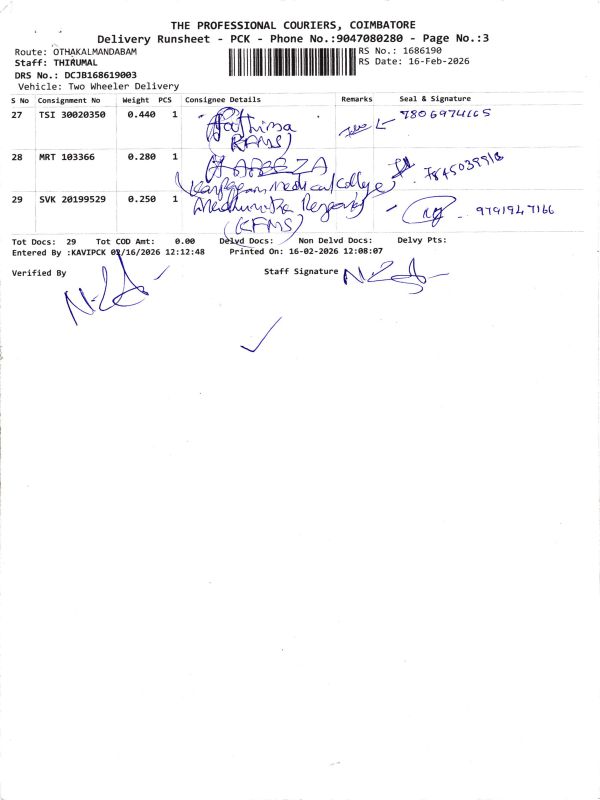 THE PROFESSIONAL COURIERS, COIMBATORE
Delivery Runsheet - PCK - Phone No.:9047080280 - Page No.:3
Route: OTHAKALMANDABAM
RS No.: 1686190
Staff: THIRUMAL
RS Date: 16-Feb-2026
DRS No.: DCJB168619003
Vehicle: Two Wheeler Delivery
S No Consignment No Weight PCS Consignee Details Remarks Seal & Signature
27 TSI 30020350 0.440 1 Fathima 7806974665
(KFMS)
28 MRT 103366 0.280 1 7845039918
Karpagam Medical College
29 SVK 20199529 0.250 1 9791947166
(KFMS)
Tot Docs: 29 Tot COD Amt: 0.00 Delvd Docs: Non Delvd Docs: Delvy Pts:
Entered By :KAVIPCK 02/16/2026 12:12:48 Printed On: 16-02-2026 12:08:07
Verified By Staff Signature